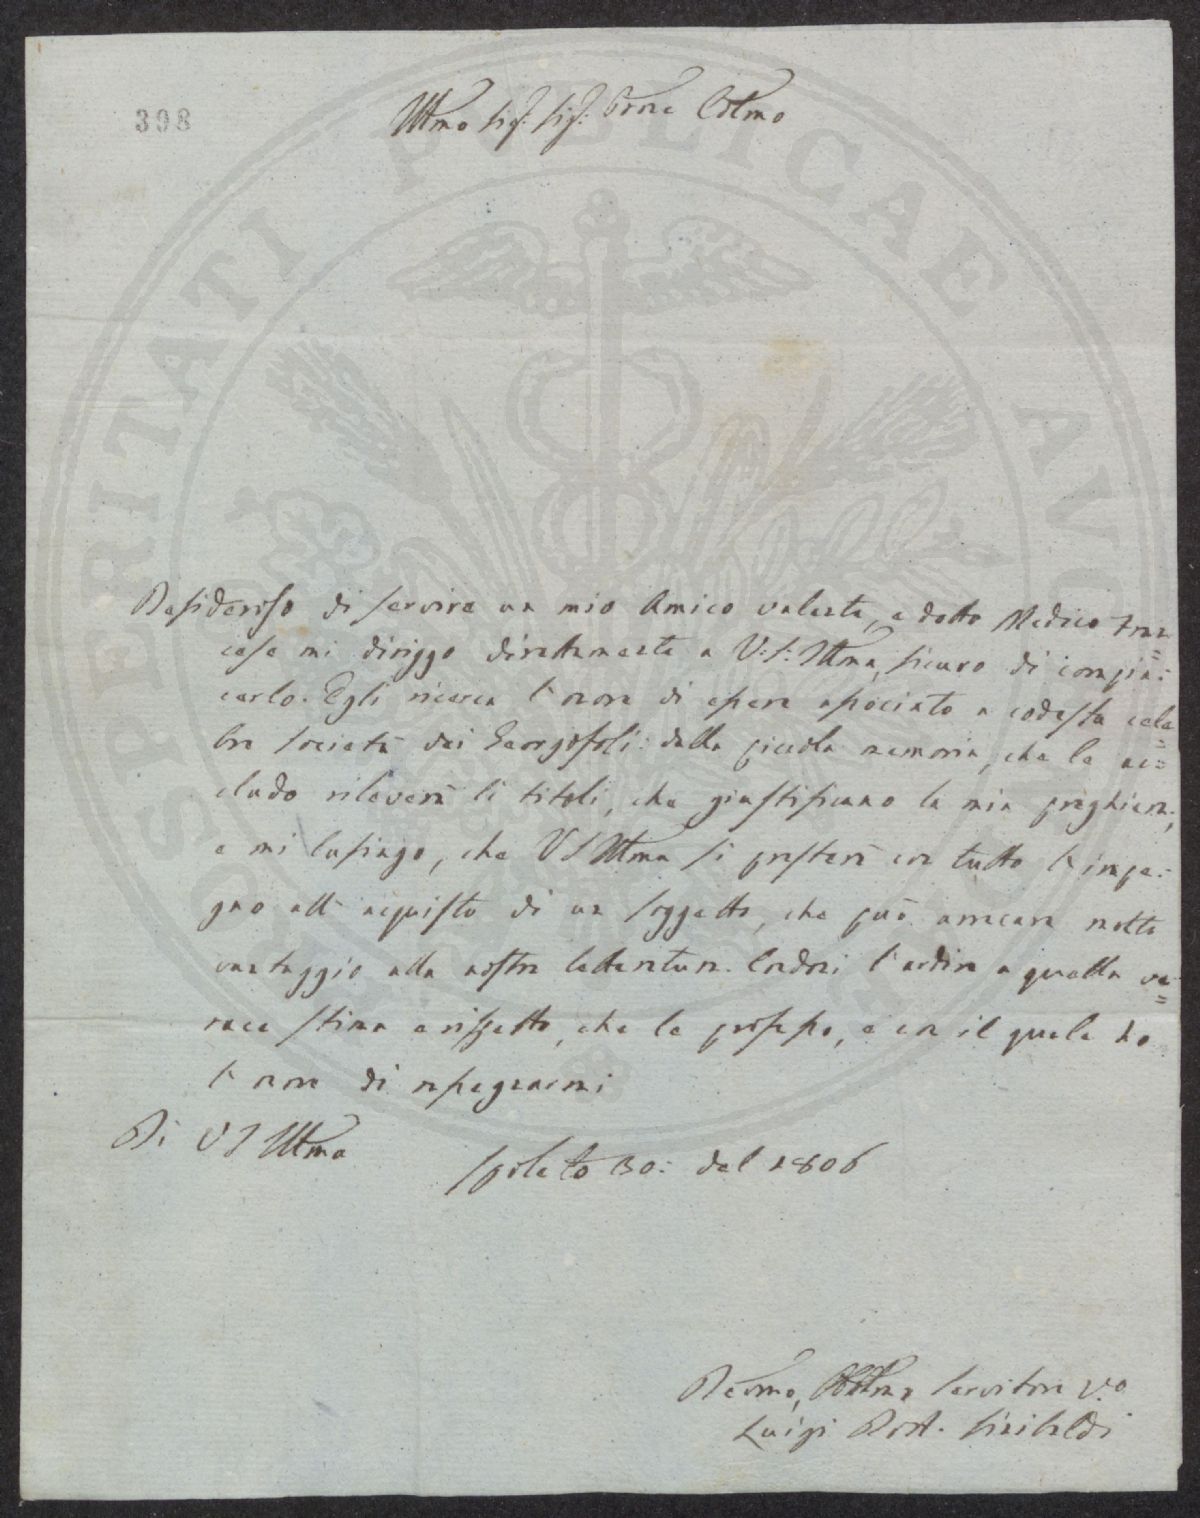 398
Illmo Sig: Sig: Prone Colmo
Desideroso di servire un mio Amico valente, e dotto Medico Fran=
cese mi diriggo direttamente a V:S: Illma, sicuro di compia=
cerlo. Egli ricerca l'onore di essere associato a codesta cele=
bre Società dei Georgofoli: dalla piccola memoria, che le ac=
cludo rileverà li titoli, che giustificano la mia preghiera;
e mi lusingo, che VS Illma si presterà con tutto l'impe=
gno all'acquisto di un soggetto, che può arrecare molto
vantaggio alla nostra letteratura. Condoni l'ardire a quella ve=
race stima e rispetto, che le professo, e con il quale ho
l'onore di rassegnarmi
Di VS Illma
Spoleto 30: del 1806
Devmo, Obblmo Servitore Vo
Luigi Dott. Sinibaldi
PROSPERITATI PUBLICAE AUGENDAE